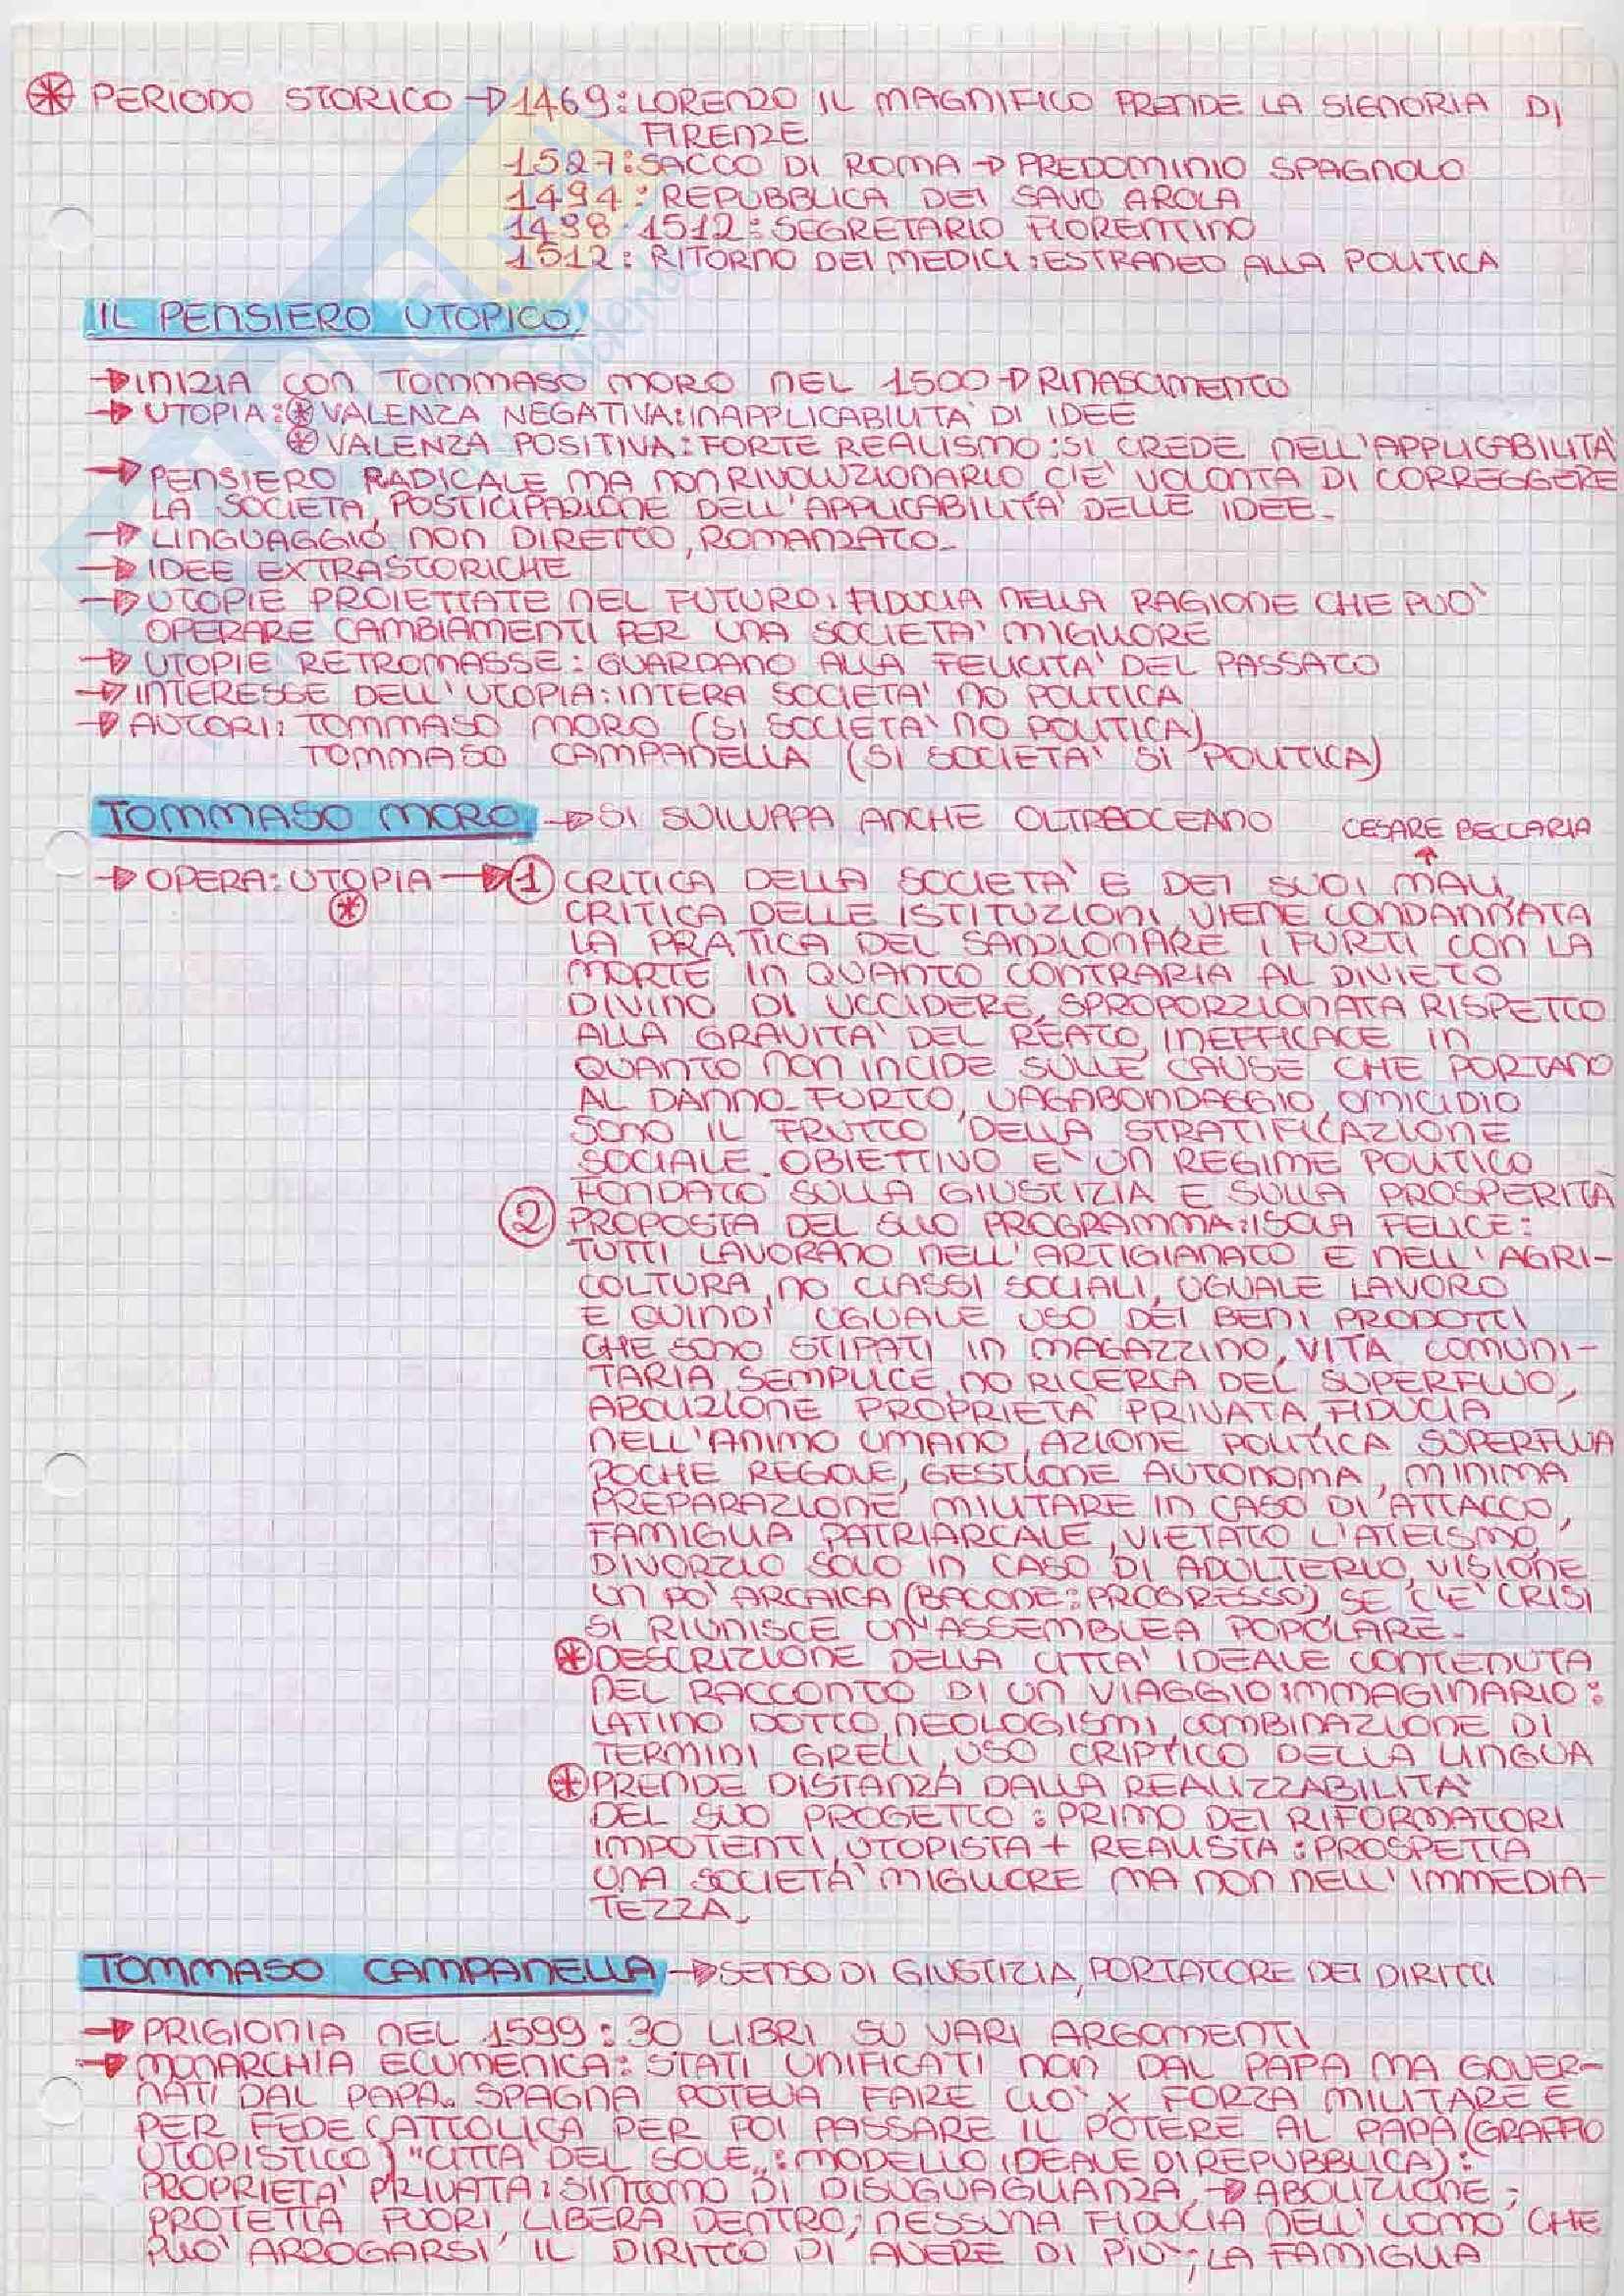 PERIODO STORICO → 1469: LORENZO IL MAGNIFICO PRENDE LA SIGNORIA DI
FIRENZE
1527: SACCO DI ROMA → PREDOMINIO SPAGNOLO
1494: REPUBBLICA DEI SAVO AROLA
1498-1512: SEGRETARIO FIORENTINO
1512: RITORNO DEI MEDICI: ESTRANEO ALLA POLITICA
IL PENSIERO UTOPICO
→ INIZIA CON TOMMASO MORO NEL 1500 → RINASCIMENTO
→ UTOPIA: * VALENZA NEGATIVA: INAPPLICABILITA' DI IDEE
* VALENZA POSITIVA: FORTE REALISMO: SI CREDE NELL'APPLICABILITA'
→ PENSIERO RADICALE MA NON RIVOLUZIONARIO C'E' VOLONTA DI CORREGGERE
LA SOCIETA', POSTICIPAZIONE DELL'APPLICABILITA' DELLE IDEE.
→ LINGUAGGIO NON DIRETTO, ROMANZATO.
→ IDEE EXTRASTORICHE
→ UTOPIE PROIETTATE NEL FUTURO: FIDUCIA NELLA RAGIONE CHE PUO'
OPERARE CAMBIAMENTI PER UNA SOCIETA' MIGLIORE
→ UTOPIE RETROMASSE: GUARDANO ALLA FELICITA' DEL PASSATO
→ INTERESSE DELL'UTOPIA: INTERA SOCIETA' NO POLITICA
→ AUTORI: TOMMASO MORO (SI SOCIETA' NO POLITICA)
TOMMASO CAMPANELLA (SI SOCIETA' SI POLITICA)
TOMMASO MORO → SI SVILUPPA ANCHE OLTREOCEANO CESARE BECCARIA
→ OPERA: UTOPIA → 1 CRITICA DELLA SOCIETA' E DEI SUOI MALI,
* CRITICA DELLE ISTITUZIONI, VIENE CONDANNATA
LA PRATICA DEL SANZIONARE I FURTI CON LA
MORTE IN QUANTO CONTRARIA AL DIVIETO
DIVINO DI UCCIDERE, SPROPORZIONATA RISPETTO
ALLA GRAVITA' DEL REATO, INEFFICACE IN
QUANTO NON INCIDE SULLE CAUSE CHE PORTANO
AL DANNO. FURTO, VAGABONDAGGIO, OMICIDIO
SONO IL FRUTTO DELLA STRATIFICAZIONE
SOCIALE. OBIETTIVO E' UN REGIME POLITICO
FONDATO SULLA GIUSTIZIA E SULLA PROSPERITA'
2 PROPOSTA DEL SUO PROGRAMMA: ISOLA FELICE:
TUTTI LAVORANO NELL'ARTIGIANATO E NELL'AGRI-
COLTURA, NO CLASSI SOCIALI, UGUALE LAVORO
E QUINDI UGUALE USO DEI BENI PRODOTTI
CHE SONO STIPATI IN MAGAZZINO, VITA COMUNI-
TARIA, SEMPLICE, NO RICERCA DEL SUPERFLUO,
ABOLIZIONE PROPRIETA' PRIVATA, FIDUCIA
NELL'ANIMO UMANO, AZIONE POLITICA SUPERFLUA
POCHE REGOLE, GESTIONE AUTONOMA, MINIMA
PREPARAZIONE MILITARE IN CASO DI ATTACCO,
FAMIGLIA PATRIARCALE, VIETATO L'ATEISMO,
DIVORZIO SOLO IN CASO DI ADULTERIO, VISIONE
UN PO' ARCAICA (BACONE: PROGRESSO) SE C'E' CRISI
SI RIUNISCE UN'ASSEMBLEA POPOLARE.
* DESCRIZIONE DELLA CITTA' IDEALE CONTENUTA
NEL RACCONTO DI UN VIAGGIO IMMAGINARIO:
LATINO DOTTO, NEOLOGISMI, COMBINAZIONE DI
TERMINI GRECI, USO CRIPTICO DELLA LINGUA
* PRENDE DISTANZA DALLA REALIZZABILITA'
DEL SUO PROGETTO: PRIMO DEI RIFORMATORI
IMPOTENTI, UTOPISTA + REALISTA: PROSPETTA
UNA SOCIETA' MIGLIORE MA NON NELL'IMMEDIA-
TEZZA.
TOMMASO CAMPANELLA → SENSO DI GIUSTIZIA, PORTATORE DEI DIRITTI
→ PRIGIONIA NEL 1599: 30 LIBRI SU VARI ARGOMENTI
→ MONARCHIA ECUMENICA: STATI UNIFICATI NON DAL PAPA MA GOVER-
NATI DAL PAPA. SPAGNA POTEVA FARE CIO' X FORZA MILITARE E
PER FEDE CATTOLICA PER POI PASSARE IL POTERE AL PAPA (GRAPPIO
UTOPISTICO) "CITTA' DEL SOLE": MODELLO IDEALE DI REPUBBLICA):
PROPRIETA' PRIVATA: SINTOMO DI DISUGUAGLIANZA → ABOLIZIONE;
PROTETTA FUORI, LIBERA DENTRO; NESSUNA FIDUCIA NELL'UOMO CHE
PUO' ARROGARSI IL DIRITTO DI AVERE DI PIU'; LA FAMIGLIA